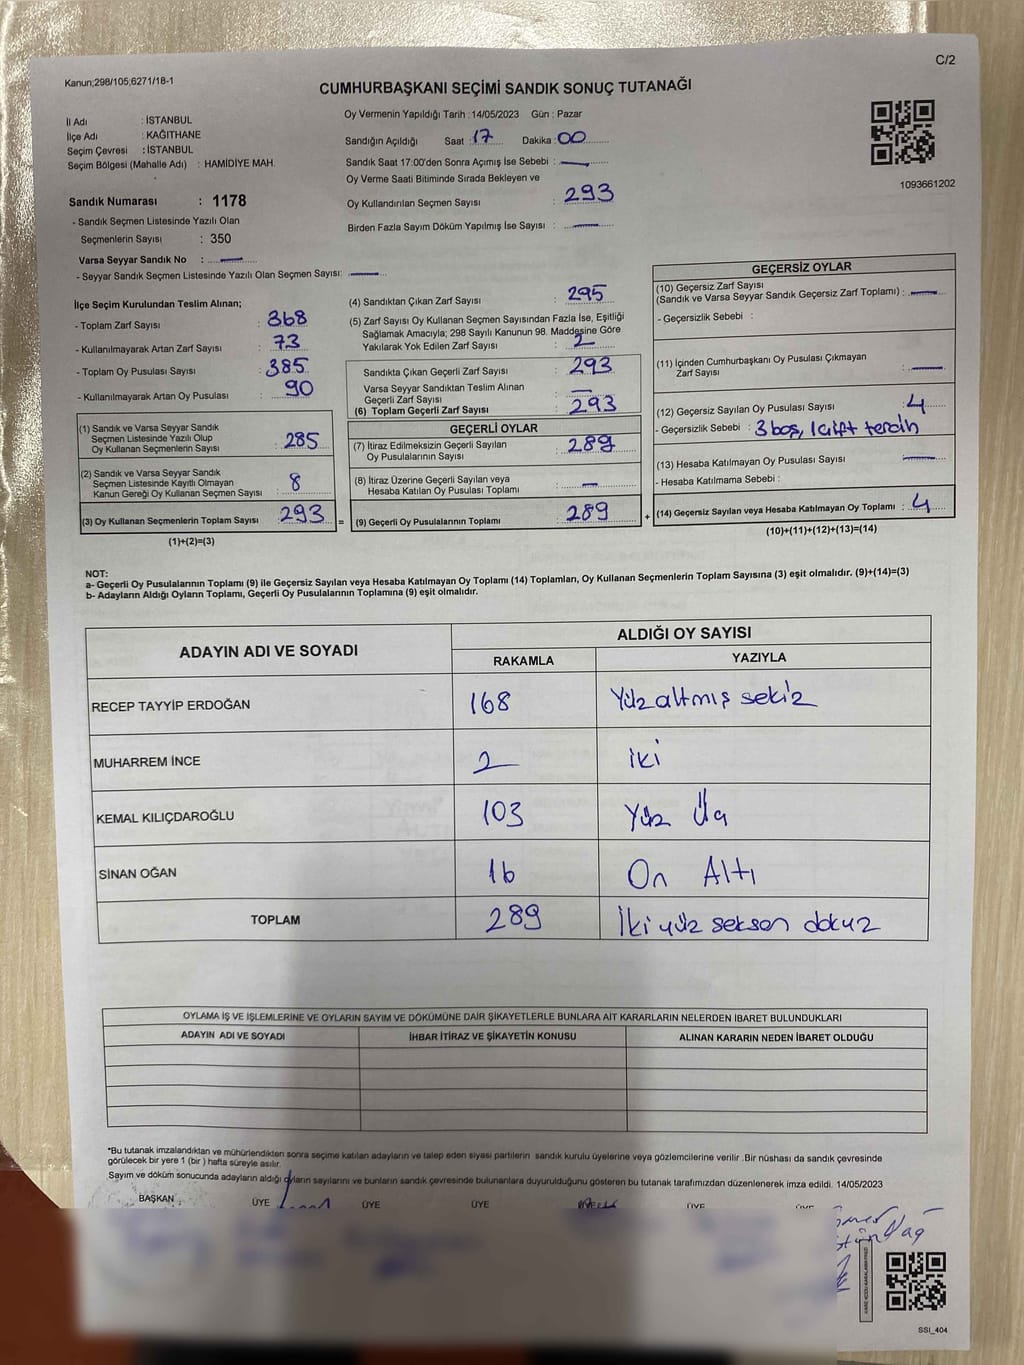 Kanun;298/105;6271/18-1
C/2
CUMHURBAŞKANI SEÇİMİ SANDIK SONUÇ TUTANAĞI
İl Adı : İSTANBUL
İlçe Adı : KAĞITHANE
Seçim Çevresi : İSTANBUL
Seçim Bölgesi (Mahalle Adı) : HAMİDİYE MAH.
Oy Vermenin Yapıldığı Tarih : 14/05/2023 Gün : Pazar
Sandığın Açıldığı Saat : 17 Dakika : 00
Sandık Saat 17:00'den Sonra Açımış İse Sebebi : —
Oy Verme Saati Bitiminde Sırada Bekleyen ve
Oy Kullandırılan Seçmen Sayısı : 293
Birden Fazla Sayım Döküm Yapılmış İse Sayısı : —
1093661202
Sandık Numarası : 1178
- Sandık Seçmen Listesinde Yazılı Olan
Seçmenlerin Sayısı : 350
Varsa Seyyar Sandık No : —
- Seyyar Sandık Seçmen Listesinde Yazılı Olan Seçmen Sayısı: —
İlçe Seçim Kurulundan Teslim Alınan;
- Toplam Zarf Sayısı : 368
- Kullanılmayarak Artan Zarf Sayısı : 73
- Toplam Oy Pusulası Sayısı : 385
- Kullanılmayarak Artan Oy Pusulası : 90
(1) Sandık ve Varsa Seyyar Sandık
Seçmen Listesinde Yazılı Olup
Oy Kullanan Seçmenlerin Sayısı : 285
(2) Sandık ve Varsa Seyyar Sandık
Seçmen Listesinde Kayıtlı Olmayan
Kanun Gereği Oy Kullanan Seçmen Sayısı : 8
(3) Oy Kullanan Seçmenlerin Toplam Sayısı : 293 =
(1)+(2)=(3)
(4) Sandıktan Çıkan Zarf Sayısı : 295
(5) Zarf Sayısı Oy Kullanan Seçmen Sayısından Fazla İse, Eşitliği
Sağlamak Amacıyla; 298 Sayılı Kanunun 98. Maddesine Göre
Yakılarak Yok Edilen Zarf Sayısı : 2
Sandıkta Çıkan Geçerli Zarf Sayısı : 293
Varsa Seyyar Sandıktan Teslim Alınan
Geçerli Zarf Sayısı : —
(6) Toplam Geçerli Zarf Sayısı : 293
GEÇERLİ OYLAR
(7) İtiraz Edilmeksizin Geçerli Sayılan
Oy Pusulalarının Sayısı : 289
(8) İtiraz Üzerine Geçerli Sayılan veya
Hesaba Katılan Oy Pusulası Toplamı : —
(9) Geçerli Oy Pusulalarının Toplamı : 289 +
GEÇERSİZ OYLAR
(10) Geçersiz Zarf Sayısı
(Sandık ve Varsa Seyyar Sandık Geçersiz Zarf Toplamı) : —
- Geçersizlik Sebebi :
(11) İçinden Cumhurbaşkanı Oy Pusulası Çıkmayan
Zarf Sayısı : —
(12) Geçersiz Sayılan Oy Pusulası Sayısı : 4
- Geçersizlik Sebebi : 3 boş, 1 çift tercih
(13) Hesaba Katılmayan Oy Pusulası Sayısı : —
- Hesaba Katılmama Sebebi :
(14) Geçersiz Sayılan veya Hesaba Katılmayan Oy Toplamı : 4
(10)+(11)+(12)+(13)=(14)
NOT:
a- Geçerli Oy Pusulalarının Toplamı (9) ile Geçersiz Sayılan veya Hesaba Katılmayan Oy Toplamı (14) Toplamları, Oy Kullanan Seçmenlerin Toplam Sayısına (3) eşit olmalıdır. (9)+(14)=(3)
b- Adayların Aldığı Oyların Toplamı, Geçerli Oy Pusulalarının Toplamına (9) eşit olmalıdır.
ADAYIN ADI VE SOYADI ALDIĞI OY SAYISI
RAKAMLA YAZIYLA
RECEP TAYYİP ERDOĞAN 168 Yüz altmış sekiz
MUHARREM İNCE 2 iki
KEMAL KILIÇDAROĞLU 103 Yüz Üç
SİNAN OĞAN 16 On Altı
TOPLAM 289 İki yüz seksen dokuz
OYLAMA İŞ VE İŞLEMLERİNE VE OYLARIN SAYIM VE DÖKÜMÜNE DAİR ŞİKAYETLERLE BUNLARA AİT KARARLARIN NELERDEN İBARET BULUNDUKLARI
ADAYIN ADI VE SOYADI İHBAR İTİRAZ VE ŞİKAYETİN KONUSU ALINAN KARARIN NEDEN İBARET OLDUĞU
*Bu tutanak imzalandıktan ve mühürlendikten sonra seçime katılan adayların ve talep eden siyasi partilerin sandık kurulu üyelerine veya gözlemcilerine verilir .Bir nüshası da sandık çevresinde
görülecek bir yere 1 (bir ) hafta süreyle asılır.
Sayım ve döküm sonucunda adayların aldığı oyların sayılarını ve bunların sandık çevresinde bulunanlara duyurulduğunu gösteren bu tutanak tarafımızdan düzenlenerek imza edildi. 14/05/2023
BAŞKAN ÜYE ÜYE ÜYE ÜYE ÜYE
SSİ_404